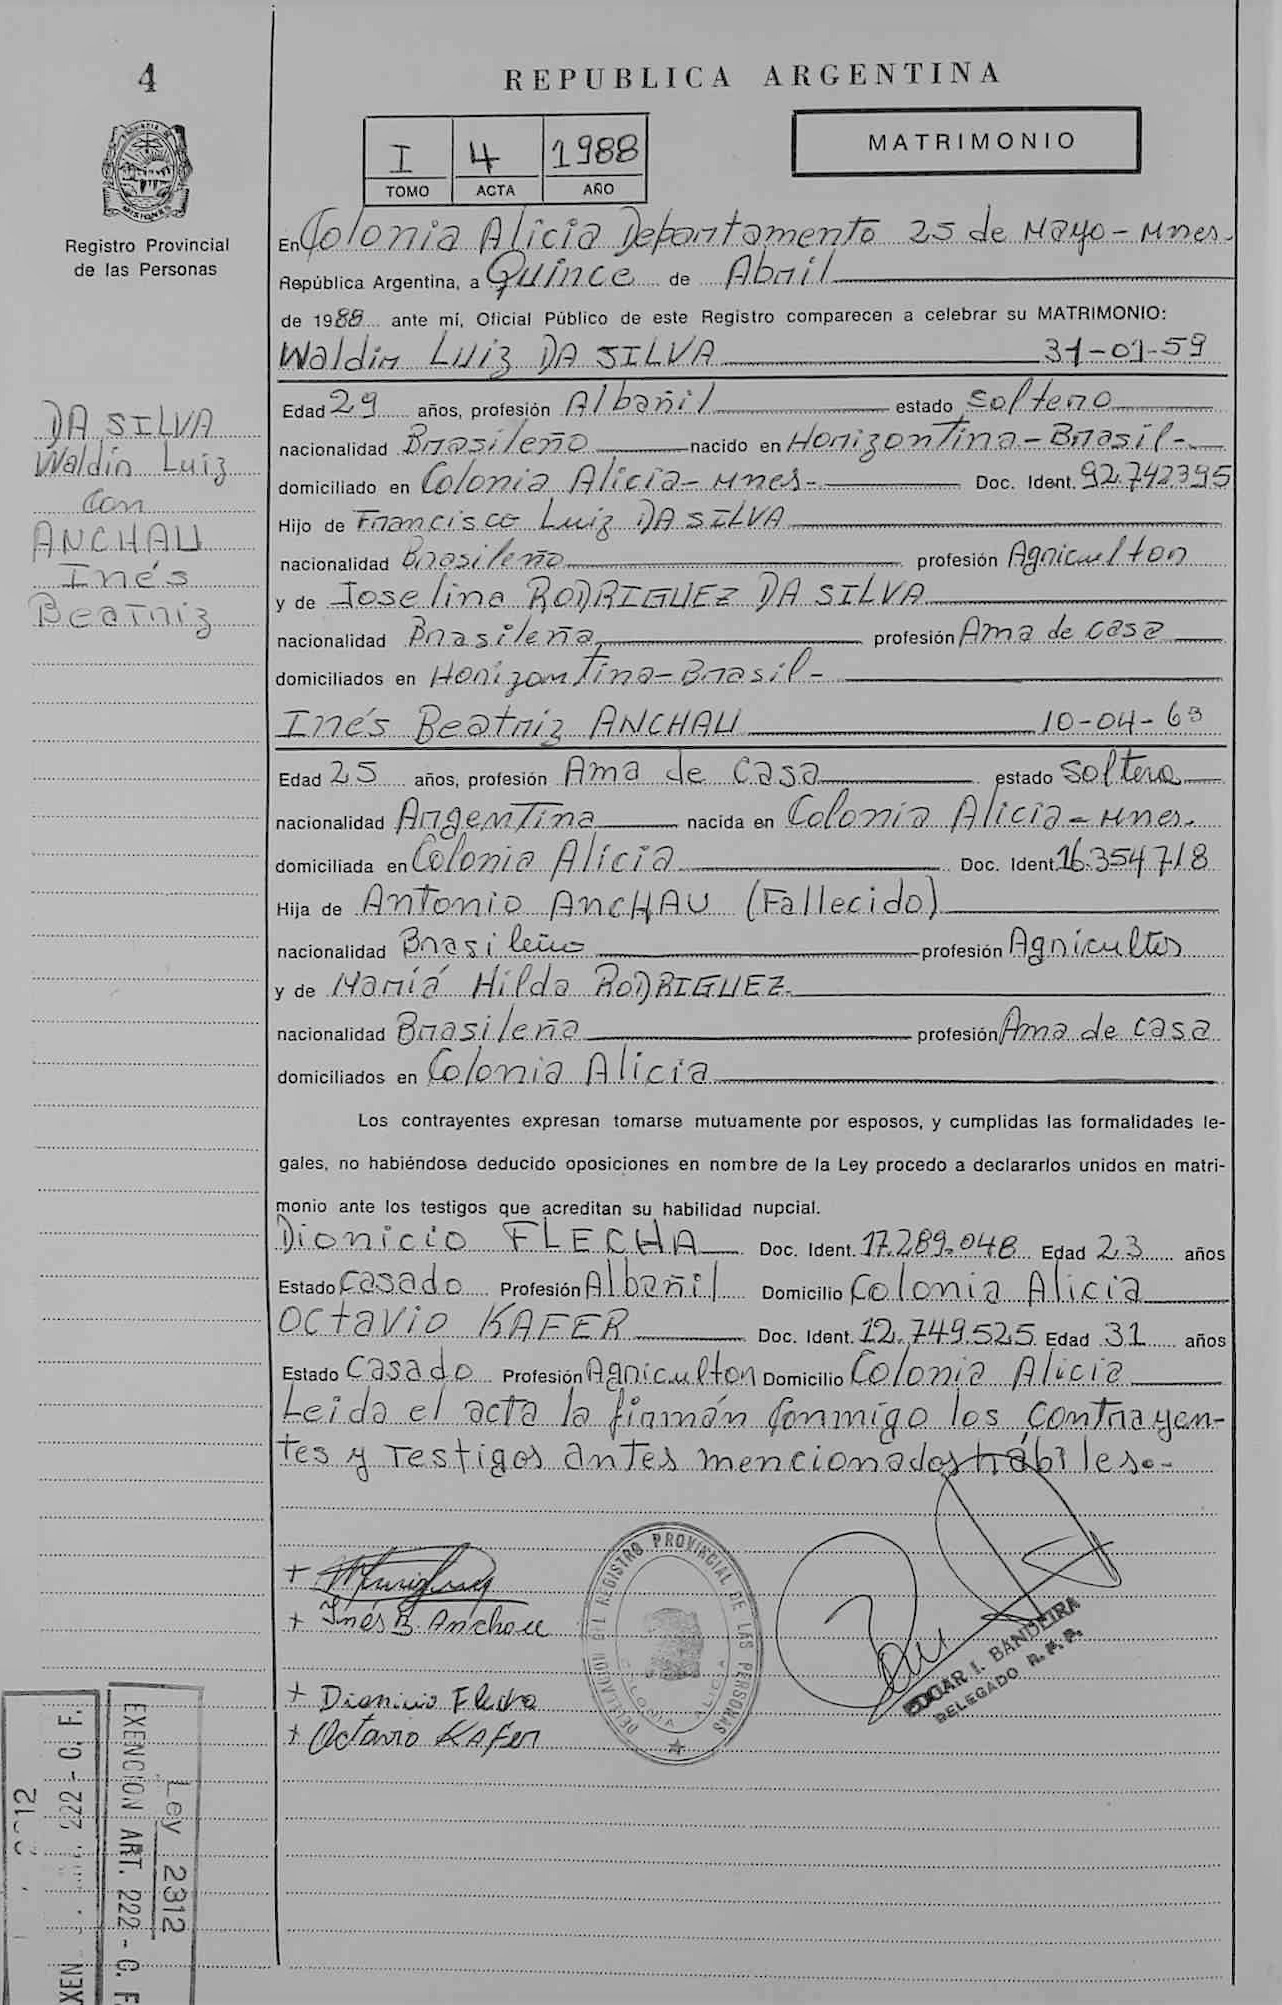 4
REPUBLICA ARGENTINA
PROVINCIA DE MISIONES
Registro Provincial
de las Personas
I 4 1988
TOMO ACTA AÑO
MATRIMONIO
En Colonia Alicia Departamento 25 de Mayo - Mnes.
República Argentina, a Quince de Abril
de 1988 ante mí, Oficial Público de este Registro comparecen a celebrar su MATRIMONIO:
Waldir Luiz DA SILVA 31-01-59
Edad 29 años, profesión Albañil estado soltero
nacionalidad Brasileño nacido en Horizontina - Brasil -
domiciliado en Colonia Alicia - Mnes - Doc. Ident. 92.742.395
Hijo de Francisco Luiz DA SILVA
nacionalidad Brasileño profesión Agricultor
y de Joselina RODRIGUEZ DA SILVA
nacionalidad Brasileña profesión Ama de casa
domiciliados en Horizontina - Brasil -
Inés Beatriz ANCHAU 10-04-63
Edad 25 años, profesión Ama de casa estado soltera
nacionalidad Argentina nacida en Colonia Alicia - Mnes.
domiciliada en Colonia Alicia Doc. Ident. 16.354.718
Hija de Antonio ANCHAU (Fallecido)
nacionalidad Brasileño profesión Agricultor
y de Mariá Hilda RODRIGUEZ
nacionalidad Brasileña profesión Ama de casa
domiciliados en Colonia Alicia
Los contrayentes expresan tomarse mutuamente por esposos, y cumplidas las formalidades le-
gales, no habiéndose deducido oposiciones en nombre de la Ley procedo a declararlos unidos en matri-
monio ante los testigos que acreditan su habilidad nupcial.
Dionicio FLECHA Doc. Ident. 17.289.048 Edad 23 años
Estado Casado Profesión Albañil Domicilio Colonia Alicia
Octavio KAFER Doc. Ident. 12.749.525 Edad 31 años
Estado Casado Profesión Agricultor Domicilio Colonia Alicia
Leida el acta la firmán conmigo los contrayen-
tes y testigos antes mencionados hábiles.-
+
+ Inés B. Anchau
+ Dionicio Flecha
+ Octavio Kafer
DELEGACION DEL REGISTRO PROVINCIAL DE LAS PERSONAS
COLONIA ALICIA
EDGAR I. BANDEIRA
DELEGADO R. P. P.
DA SILVA
Waldir Luiz
con
ANCHAU
Inés
Beatriz
Ley 2312
EXENCION ART. 222 - C. F.
222 - C. F.